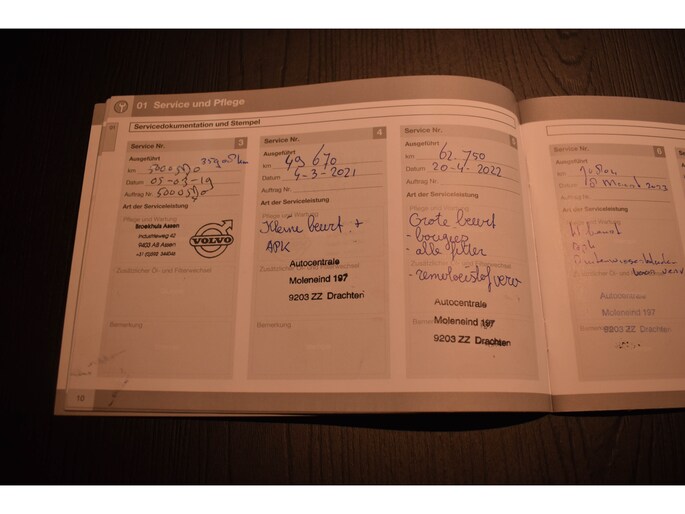 01 Service und Pflege
Servicedokumentation und Stempel
3
Service Nr.
Ausgeführt
km 5000580
Datum 05-03-19
Auftrag Nr. 5000580
Art der Serviceleistung
Pflege und Wartung
Broekhuis Assen
Industrieweg 42
9403 AB Assen
VOLVO
Zusätzlicher Öl- und Filterwechsel
Bemerkung
10
4
Service Nr.
Ausgeführt
km 49 670
Datum 4-3-2021
Auftrag Nr.
Art der Serviceleistung
Pflege und Wartung
Kleine beurt +
APK
Autocentrale
Moleneind 197
9203 ZZ Drachten
Bemerkung
5
Service Nr.
Ausgeführt
km 62.750
Datum 20-4-2022
Auftrag Nr.
Art der Serviceleistung
Pflege und Wartung
Grote beurt
- bougies
- alle filter
- remvloeistof verv
Autocentrale
Moleneind 197
9203 ZZ Drachten
6
Service Nr.
Ausgeführt
km
Datum
Auftrag Nr.
Art der Serviceleistung
Pflege und Wartung
Zusätzlicher Öl- und
Moleneind 197
9203 ZZ Drachten